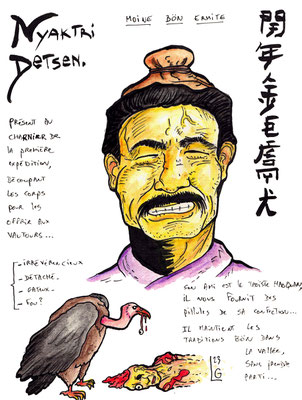 NYAKTRI
DETSEN.
MOINE BÖN ERMITE
PRÉSENT AU
CHARNIER DE
LA PREMIÈRE
EXPÉDITION,
DÉCOUPANT
LES CORPS
POUR LES
OFFRIR AUX
VAUTOURS...
- IRRÉVÉRENCIEUX
- DÉTACHÉ.
- GATEUX.
- FOU?
SON AMI EST LE TAOÏSTE
IL NOUS FOURNIT DES
PILLULES DE SA CONFECTION...
IL MAINTIENT LES
TRADITIONS BÖN DANS
LA VALLÉE,
SANS PRENDRE
PARTI...
23
G
年金毛
犬